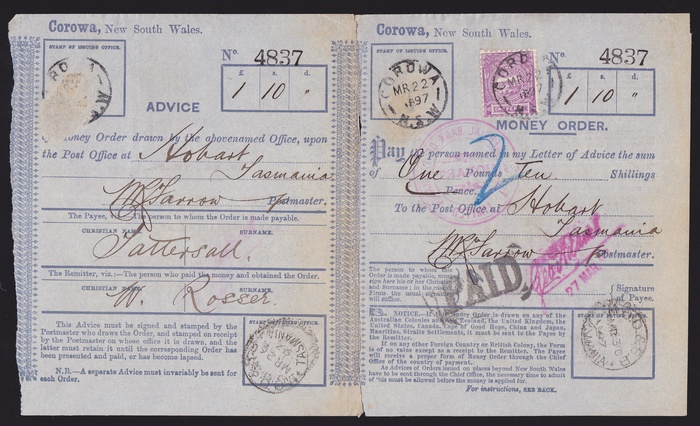 Corowa, New South Wales.
STAMP OF ISSUING OFFICE.
No. 4837
£ s. d.
1 10 "
ADVICE
Money Order drawn by the abovenamed Office, upon
the Post Office at Hobart
Tasmania
Postmaster.
The Payee, The person to whom the Order is made payable.
CHRISTIAN NAME. SURNAME.
Tattersall.
The Remitter, viz.:—The person who paid the money and obtained the Order.
CHRISTIAN NAME. SURNAME.
W. Rosser.
This Advice must be signed and stamped by the
Postmaster who draws the Order, and stamped on receipt
by the Postmaster on whose office it is drawn, and the
latter must retain it until the corresponding Order has
been presented and paid, or has become lapsed.
N.B.—A separate Advice must invariably be sent for
each Order.
TASMANIA
Corowa, New South Wales.
STAMP OF ISSUING OFFICE.
COROWA
MR 22
1897
N.S.W
COROWA
MR 22
1897
No. 4837
£ s. d.
1 10 "
MONEY ORDER.
Pay the person named in my Letter of Advice the sum
of One Pounds Ten Shillings
Pence.
2
To the Post Office at Hobart
Tasmania
Postmaster.
PAID,
27 MAR
The person to whom this
Order is made payable, must
sign here his or her Christian
and Surname;
Signature
of Payee.
NOTICE.—If the Money Order be drawn on any of the
Australian Colonies, New Zealand, the United Kingdom, the
United States, Cape of Good Hope, China and Japan,
Mauritius, Straits Settlements, it must be sent to the Payee by
the Remitter.
If on any other Foreign Country or British Colony, the Form
of no value except as a receipt to the Remitter. The Payee
will receive a proper form of Money Order through the Chief
Office of the country of payment.
As Advices of Orders on places beyond New South Wales
have to be sent through the Chief Office, the necessary time to admit
of this must be allowed before the money is applied for.
For instructions, SEE BACK.